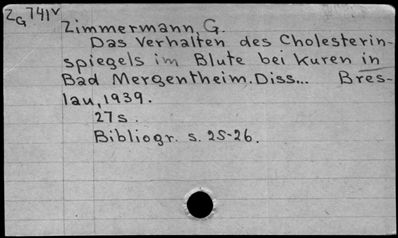 ZG 741v
Zimmermann, G.
Das Verhalten des Cholesterin-
spiegels im Blute bei Kuren in
Bad Mergentheim. Diss... Bres-
lau, 1939.
27s.
Bibliogr. s. 25-26.